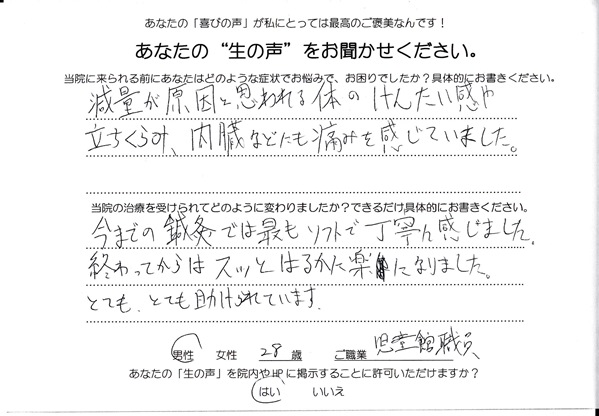 あなたの「喜びの声」が私にとっては最高のご褒美なんです!
あなたの“生の声”をお聞かせください。
当院に来られる前にあなたはどのような症状でお悩みで、お困りでしたか?具体的にお書きください。
減量が原因と思われる体のけんたい感や
立ちくらみ、内臓などにも痛みを感じていました。
当院の治療を受けられてどのように変わりましたか?できるだけ具体的にお書きください。
今までの鍼灸では最もソフトで丁寧に感じました。
終わってからはスッとはるかに楽になりました。
とても、とても助けられています.
男性 女性 28歳 ご職業 児童館職員
あなたの「生の声」を院内やHPに掲示することに許可いただけますか?
はい いいえ